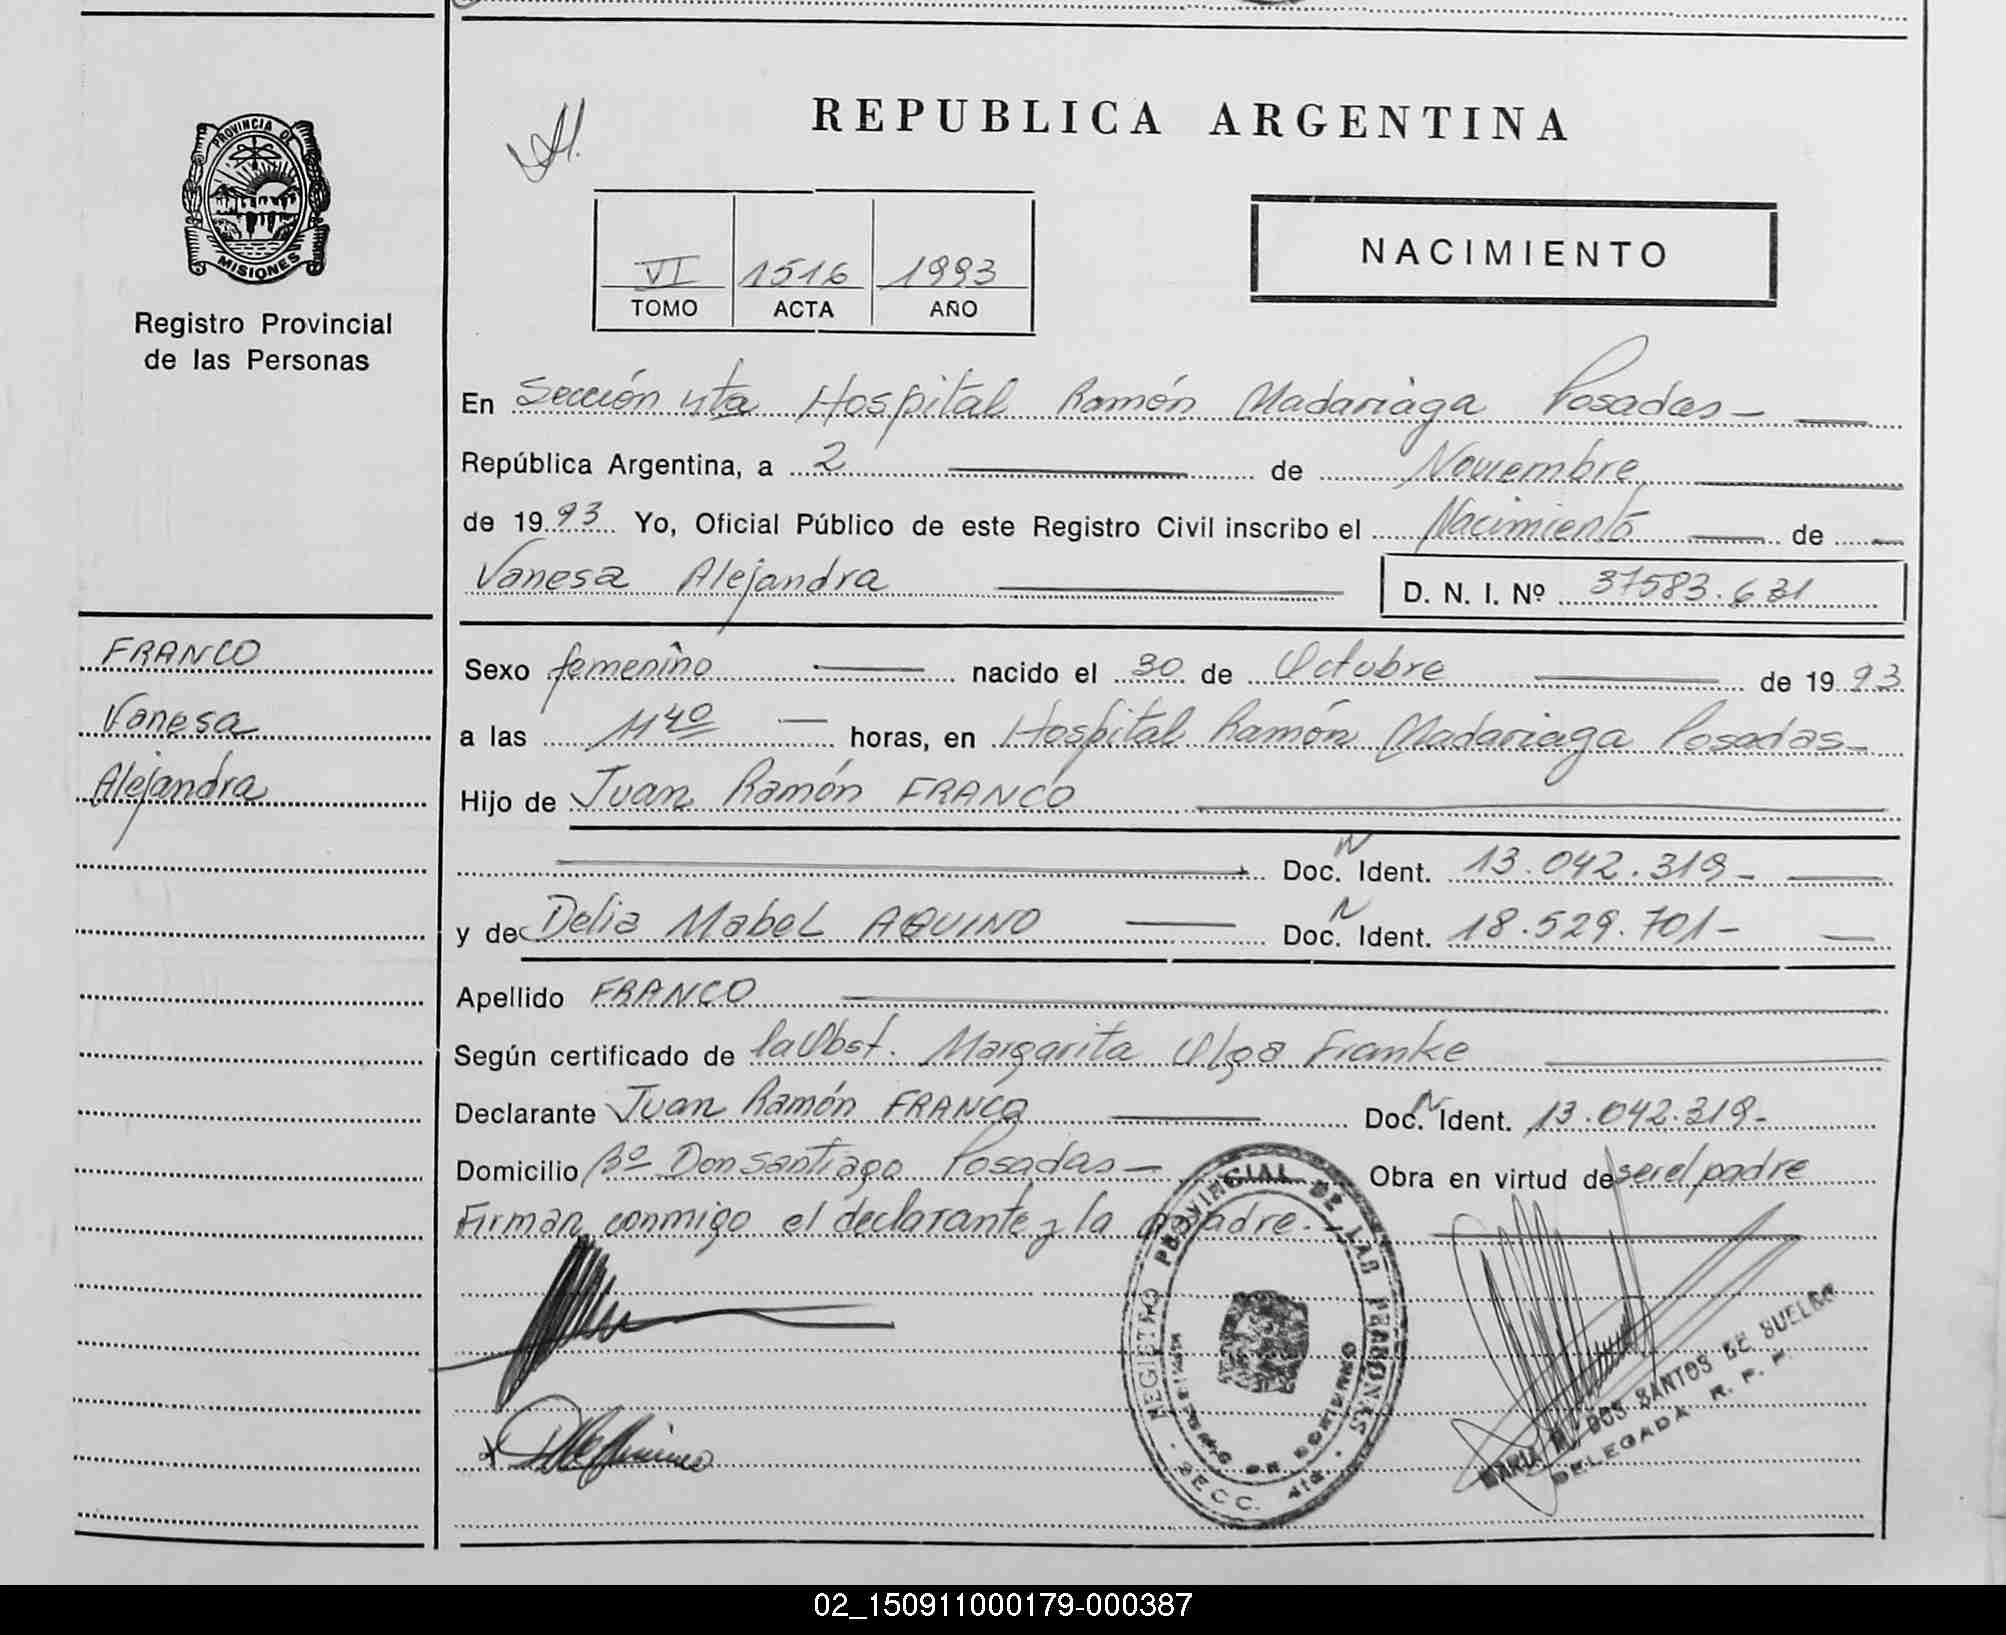 PROVINCIA DE
MISIONES
Registro Provincial
de las Personas
FRANCO
Vanesa
Alejandra
REPUBLICA ARGENTINA
VI 1516 1993
TOMO ACTA AÑO
NACIMIENTO
En Sección 4ta Hospital Ramón Madariaga Posadas —
República Argentina, a 2 — de Noviembre —
de 1993 Yo, Oficial Público de este Registro Civil inscribo el Nacimiento — de —
Vanesa Alejandra — D. N. I. Nº 37583.631
Sexo femenino — nacido el 30 de Octubre — de 1993
a las 11 40 — horas, en Hospital Ramón Madariaga Posadas —
Hijo de Juan Ramón FRANCO —
— Doc. N Ident. 13.042.319 —
y de Delia Mabel AQUINO — Doc. N Ident. 18.529.701 —
Apellido FRANCO —
Según certificado de la Obst. Margarita Olga Franke —
Declarante Juan Ramón FRANCO — Doc. N Ident. 13.042.319-
Domicilio Bº Don Santiago Posadas — Obra en virtud de ser el padre
Firman conmigo el declarante y la madre. —
REGISTRO PROVINCIAL DE LAS PERSONAS
MINISTERIO DE GOBIERNO
SECC. 4ta.
MARIA DOS SANTOS DE SUELDO
DELEGADA R. P. P.
02_150911000179-000387